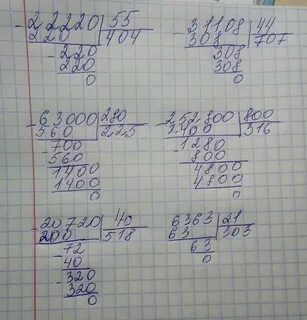 - 22220 55
220 404
- 220
220
0
- 31108 44
308 707
308
308
0
- 63000 280
560 225
700
560
1400
1400
0
- 252800 800
2400 316
1280
800
4800
4800
0
- 20720 40
200 518
- 72
40
- 320
320
0
6363 21
63 303
63
0